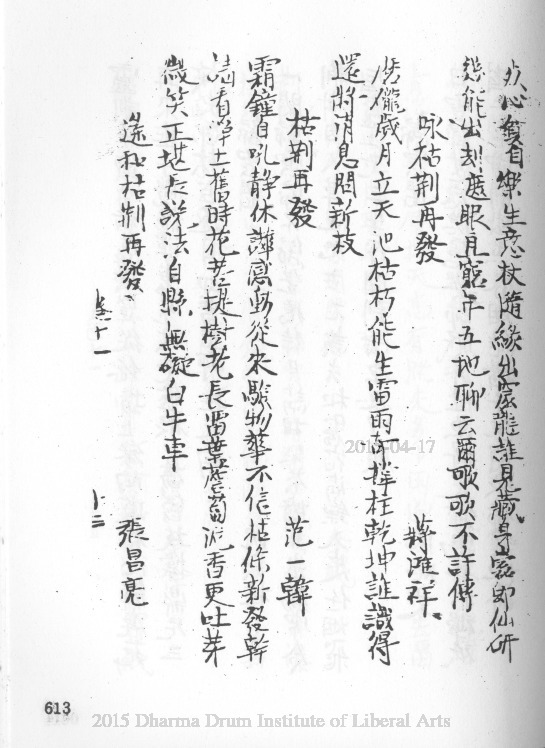 心貧自樂生意杖隨緣出窟龍誰見藏身露即仙研
能出劫遮眼且窮年五地聊云爾歌不許傳
咏枯荆再發
蔣
歲月立天池枯朽能生雷雨撑柱乾坤誰識得
還將消息問新枝
枯荆再發
范一韓
霜鐘自吼靜休譁風動從來驗物華不信枯條新發幹
請看淨土舊時花菩提樹老長留葉薝蔔泥香更吐芽
微笑正堪長說法自縣無礙白牛車
遙和枯荆再發
張昌亮
十一
613
2015-04-17
2015 Dharma Drum Institute of Liberal Arts